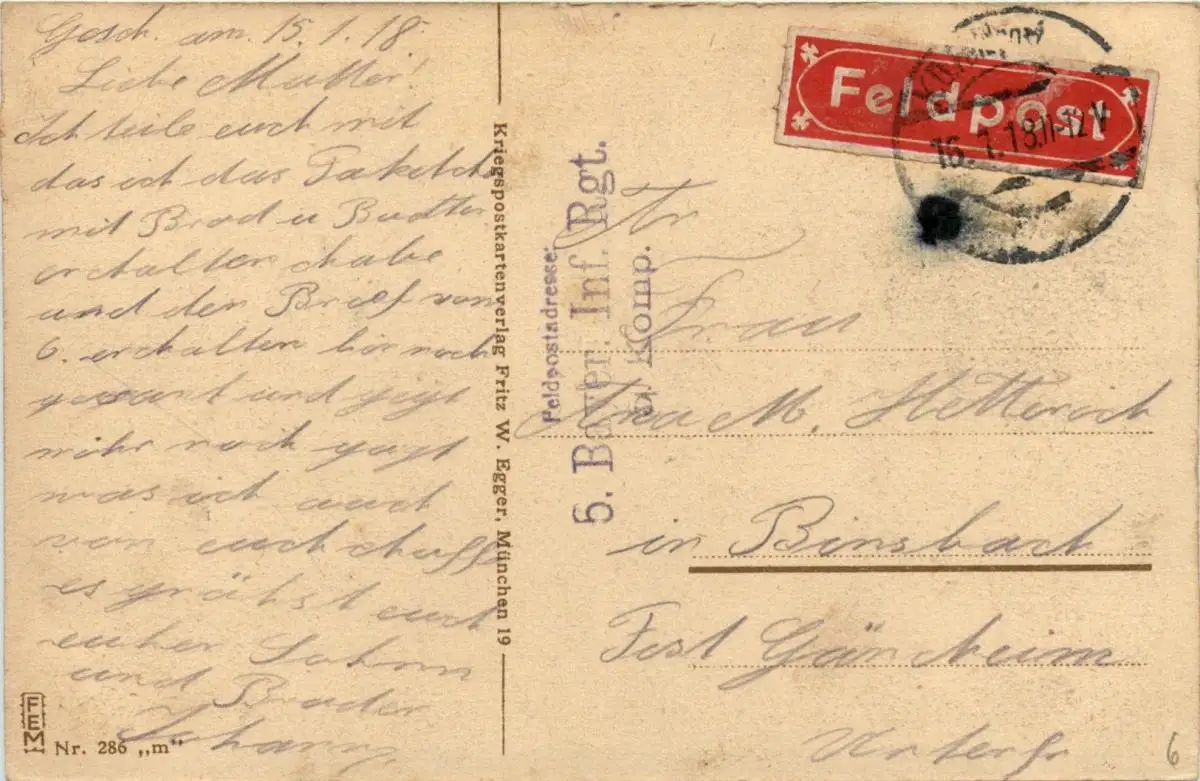 Gesch. am 15.1.18.
Liebe Mutter!
Ich teile euch mit
das ich das Paketch
mit Brod u Budter
erchalten chabe
und den Brief vom
6. erchalten bin noch
gesunt und
noch
was ich auch
von euch chuffe
es grüßst euch
eucher Sohn
und Bruder
Johann
FEM
Nr. 286 „m"
Kriegspostkartenverlag Fritz W. Egger, München 19
Feldpostadresse:
5. Bayer. Inf. Rgt.
Komp.
Feldpost
15.1.18.11-12V
Frau
M.
in Binsbach
Post Gäncheim
Unterfr
6